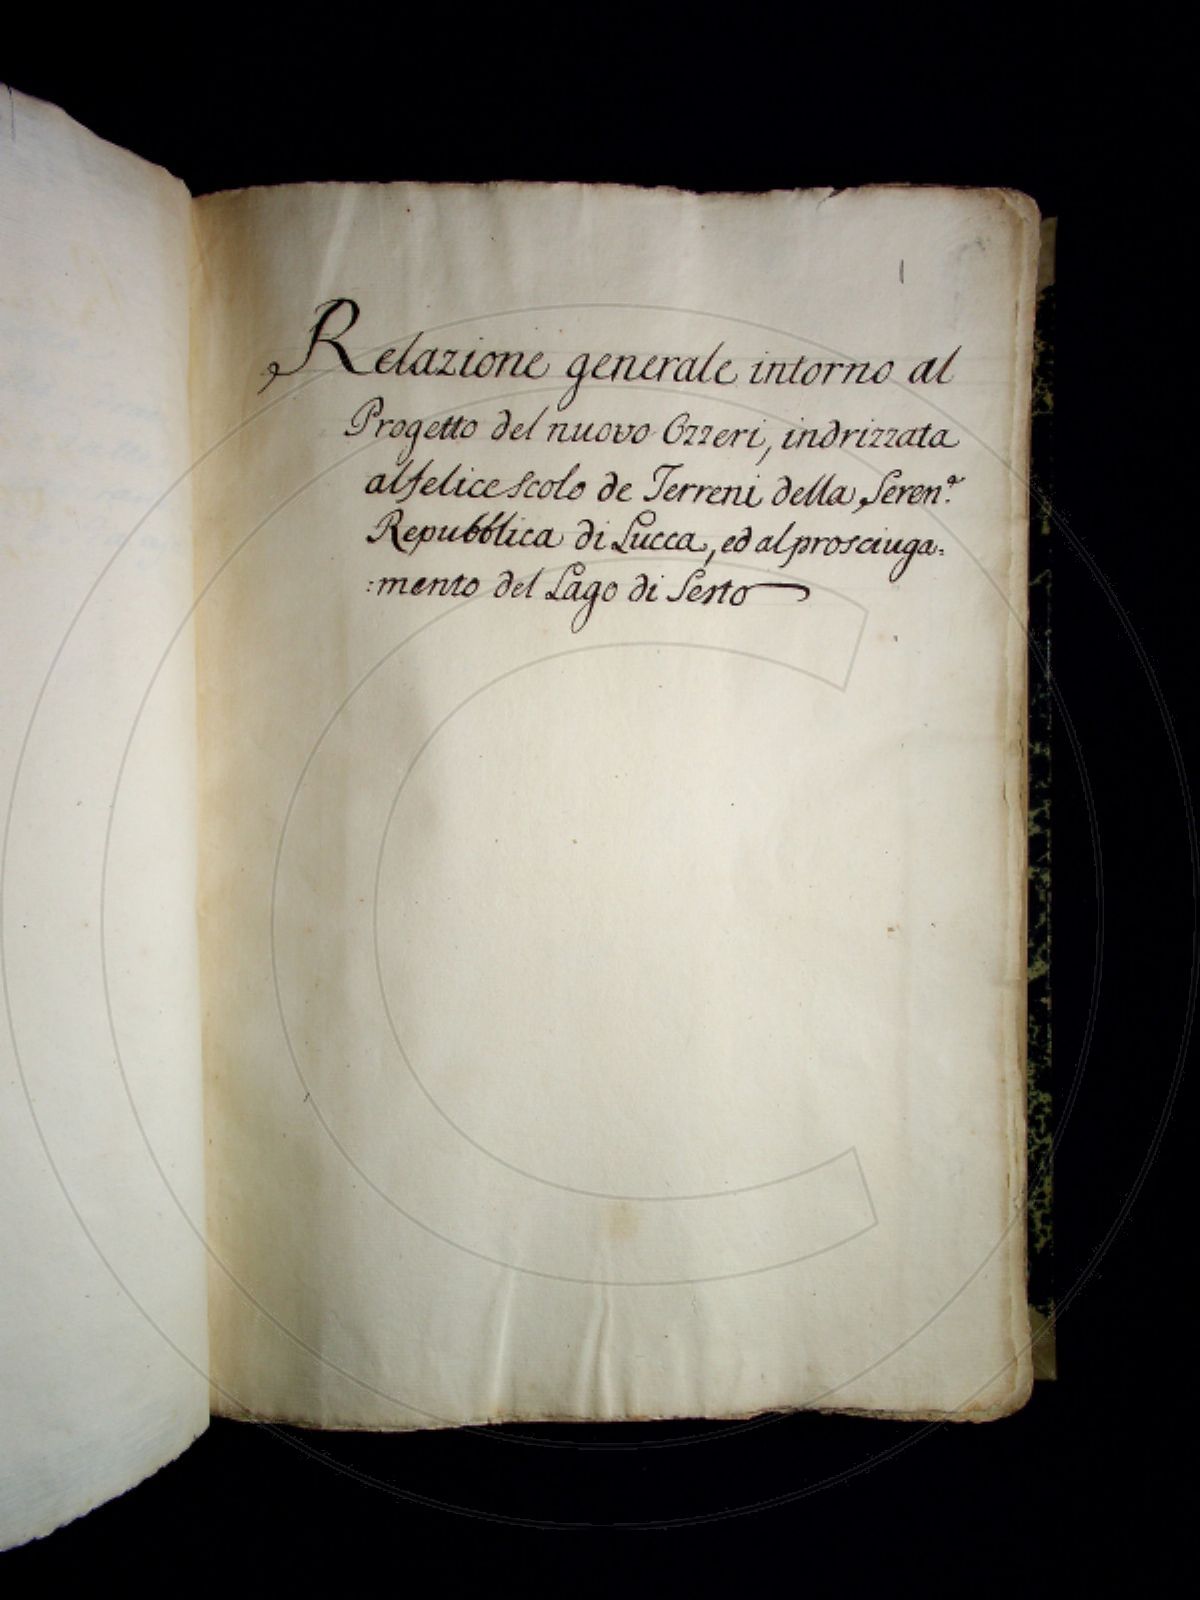 1
Relazione generale intorno al
Progetto del nuovo Ozzeri, indrizzata
al felice scolo de Terreni della Seren.ª
Repubblica di Lucca, ed al prosciuga:
:mento del Lago di Sesto